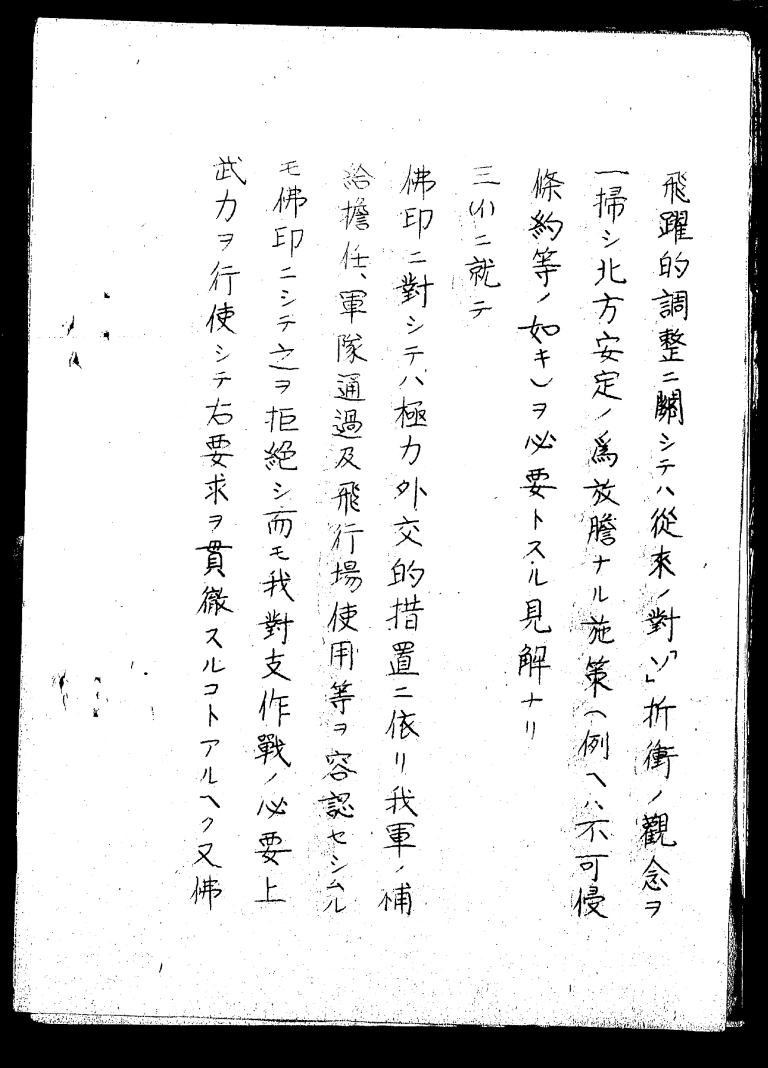 飛躍的調整ニ關シテハ從來ノ對「ソ」折衝ノ觀念ヲ
一掃シ北方安定ノ爲放膽ナル施策(例ヘハ不可侵
條約等ノ如キ)ヲ必要トスル見解ナリ
三(1)ニ就テ
佛印ニ對シテハ極力外交的措置ニ依リ我軍ノ補
給擔任、軍隊通過及飛行場使用等ヲ容認セシムル
モ佛印ニシテ之ヲ拒絕シ而モ我對支作戰ノ必要上
武力ヲ行使シテ右要求ヲ貫徹スルコトアルヘク又佛